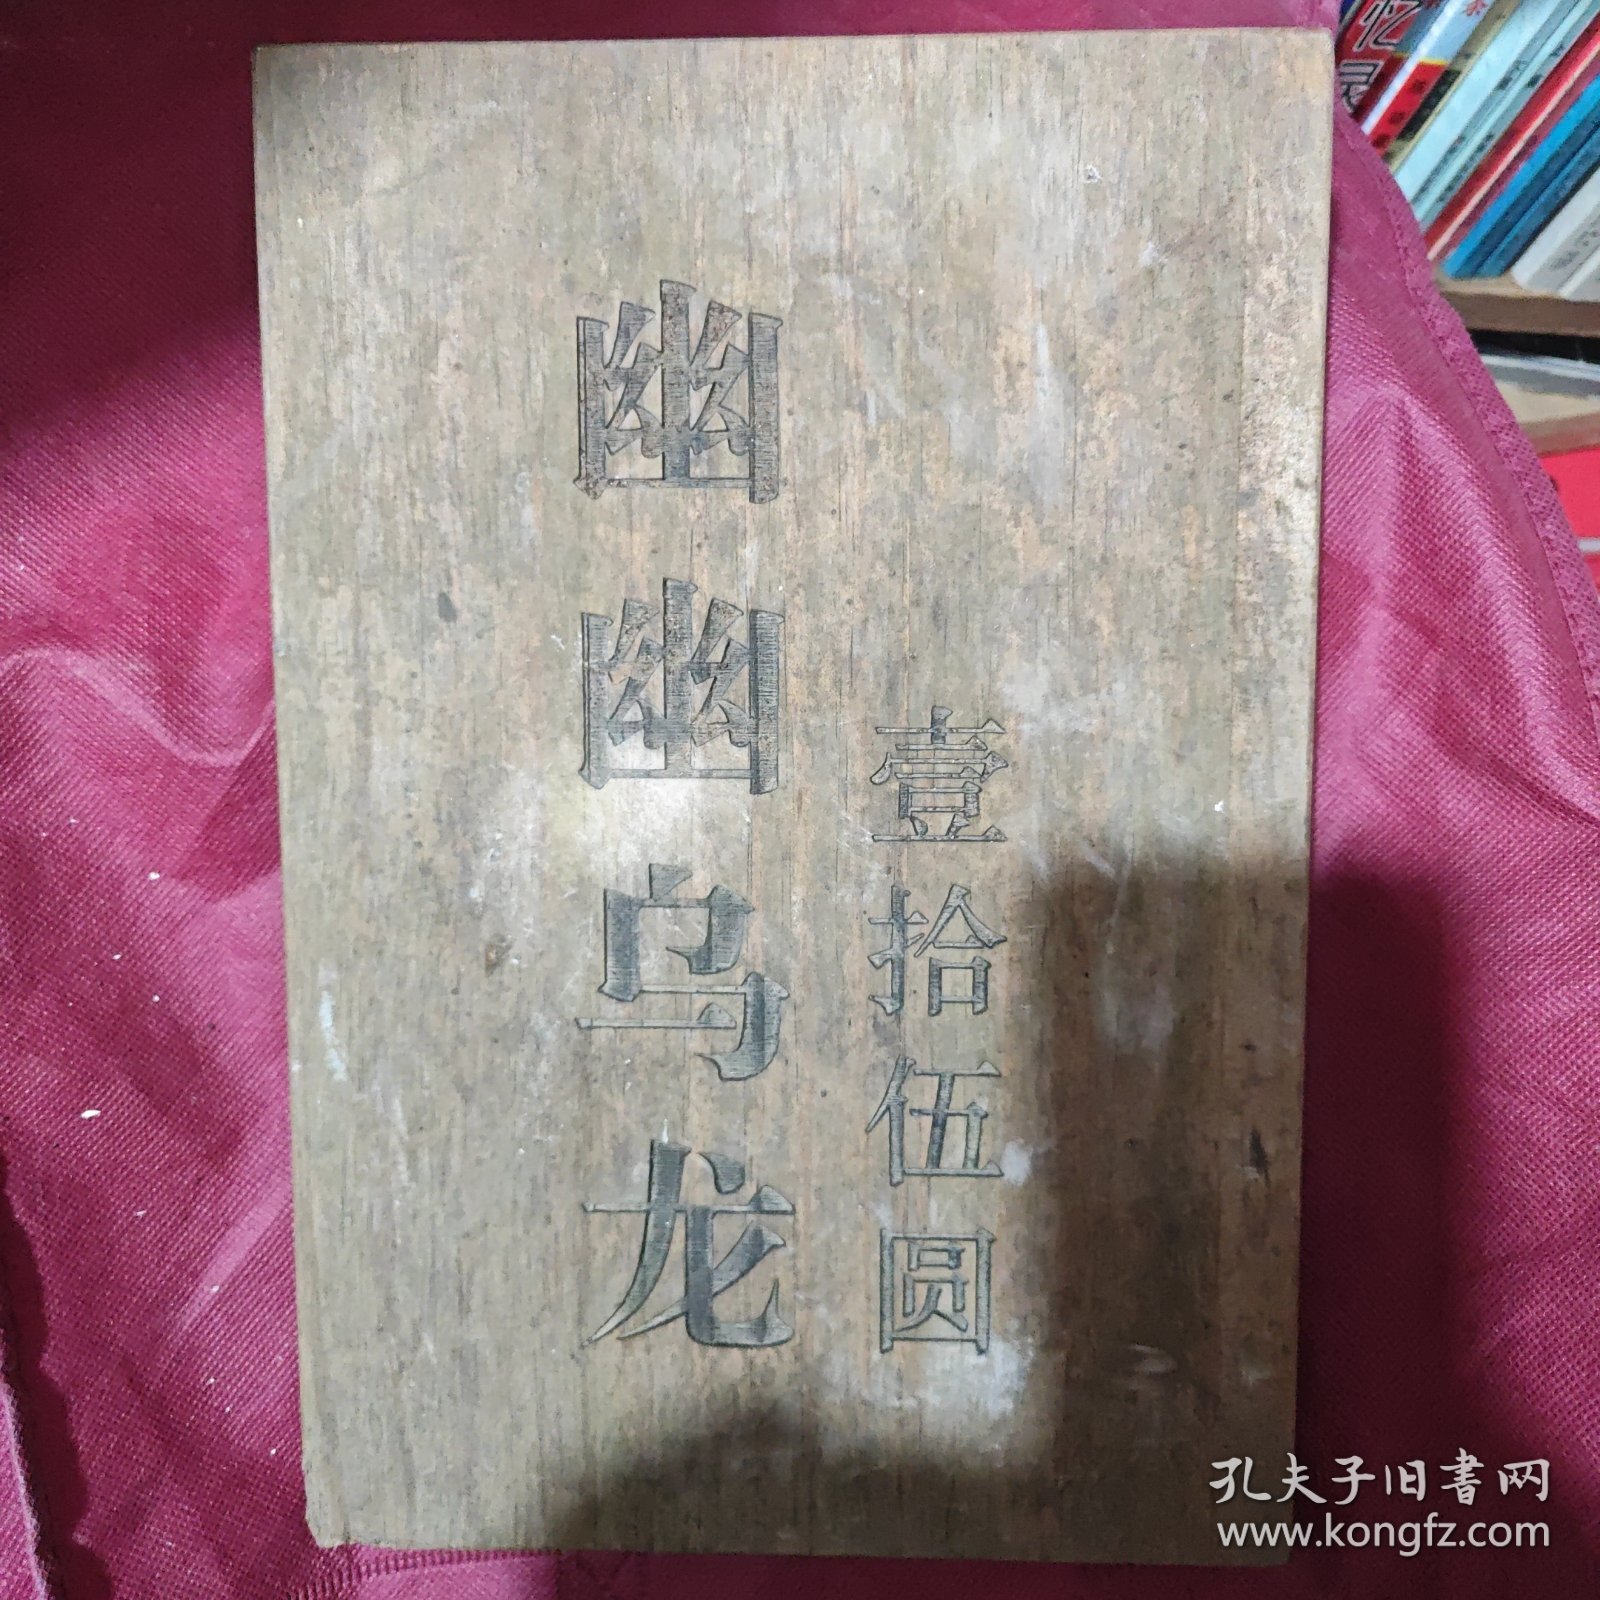 幽幽乌龙
壹拾伍圆
忆
孔夫子旧書网
www.kongfz.com